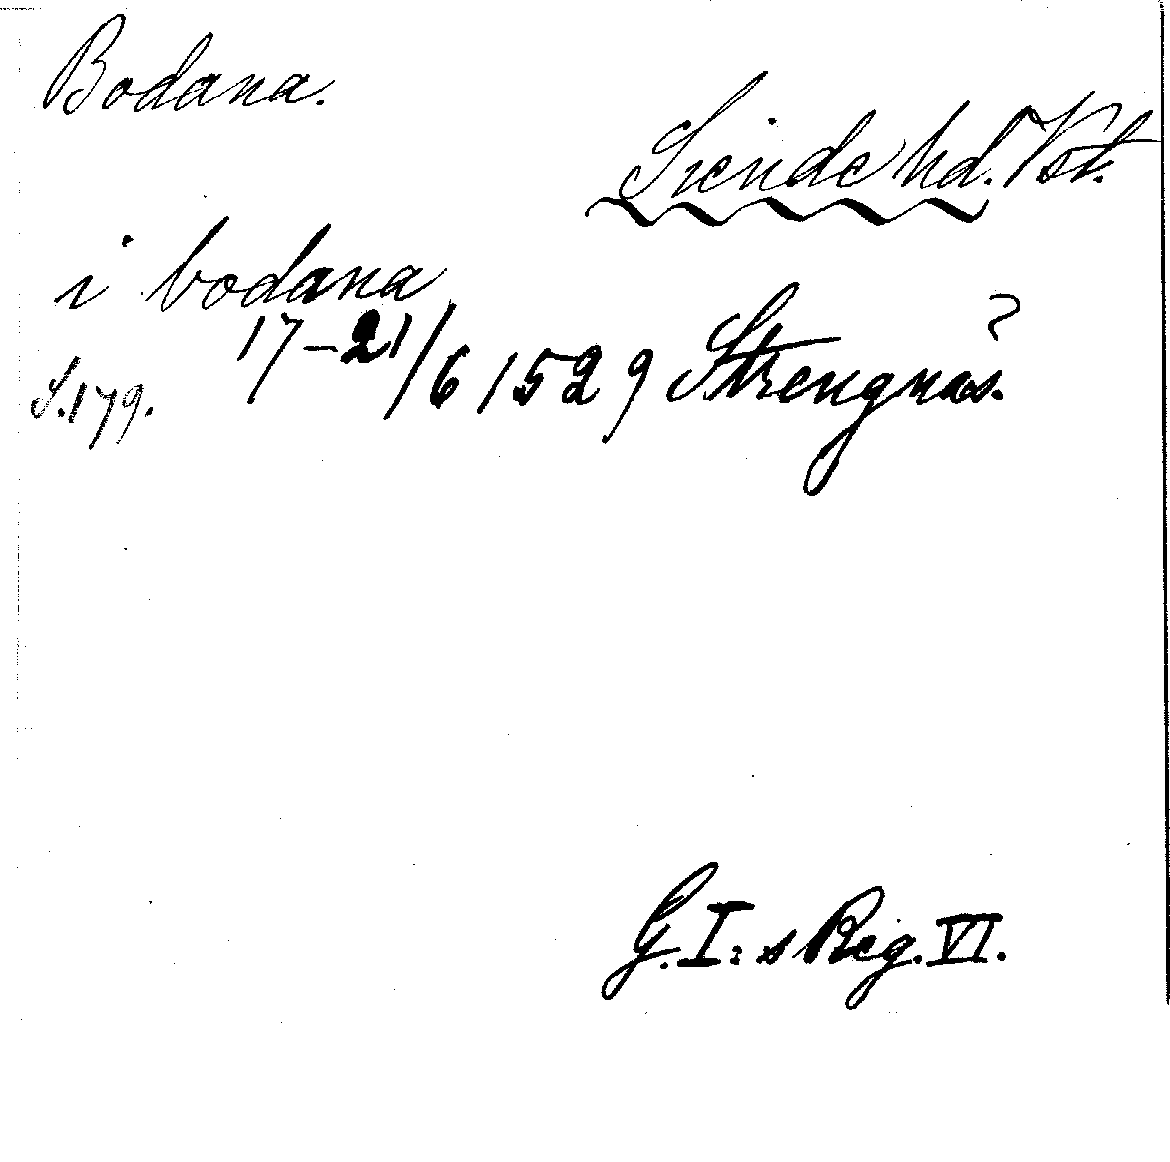 Bodana.
Siende hd. Vst.
i bodana
17-21/6 1529 Strengnäs. ?
S. 179.
G. I:s Reg. VI.